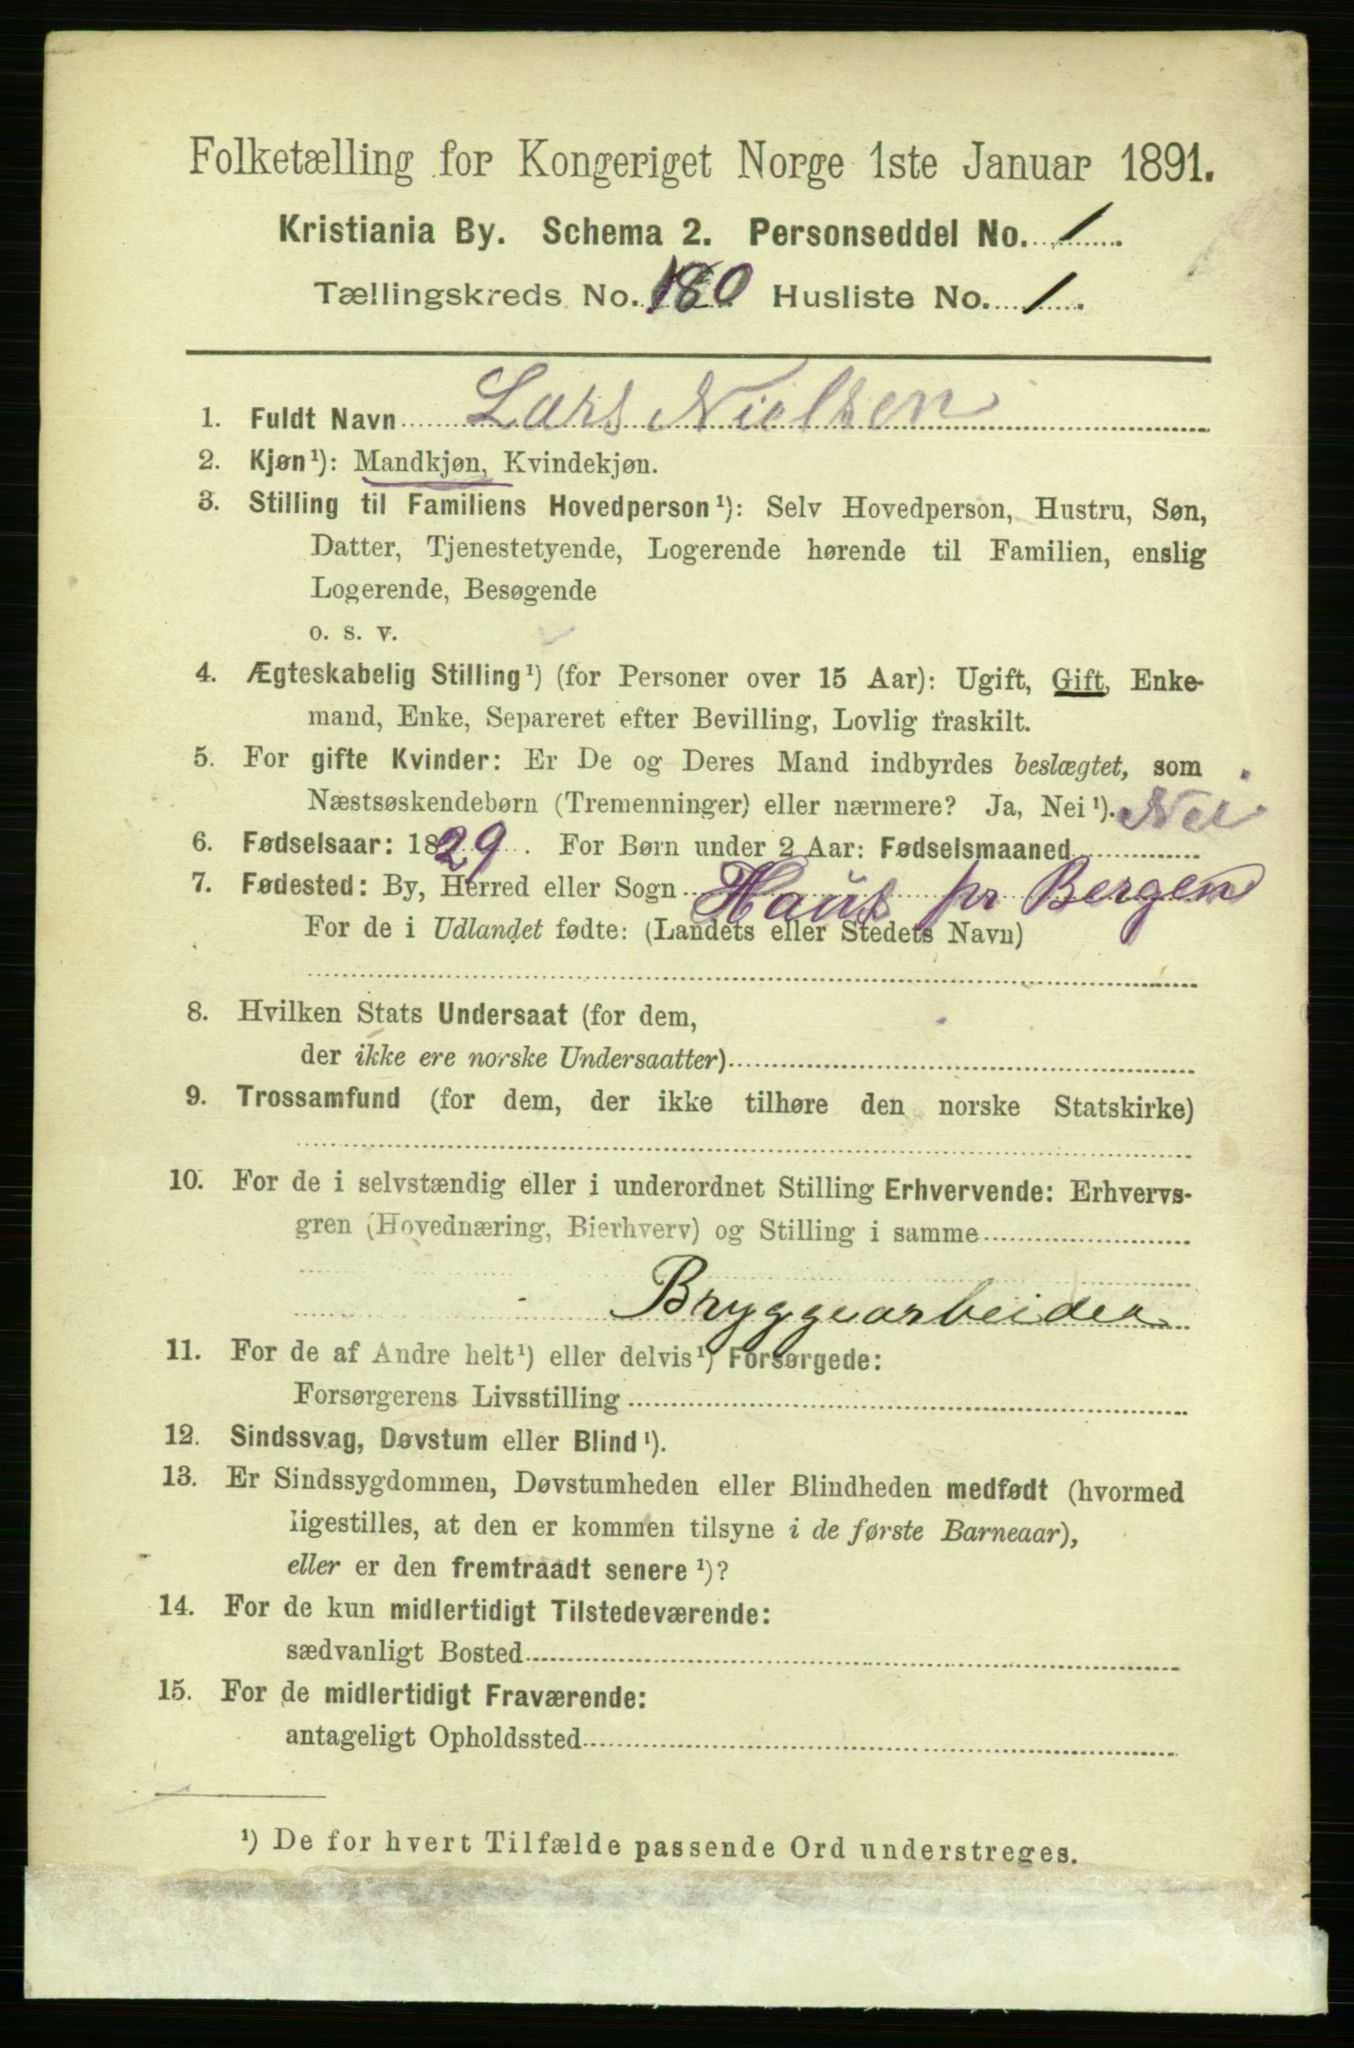 Folketælling for Kongeriget Norge 1ste Januar 1891.
Kristiania By. Schema 2. Personseddel No. 1.
Tællingskreds No. 180 Husliste No. 1.
1. Fuldt Navn Lars Nielsen
2. Kjøn¹): Mandkjøn, Kvindekjøn.
3. Stilling til Familiens Hovedperson¹): Selv Hovedperson, Hustru, Søn,
Datter, Tjenestetyende, Logerende hørende til Familien, enslig
Logerende, Besøgende
o. s. v.
4. Ægteskabelig Stilling¹) (for Personer over 15 Aar): Ugift, Gift, Enke-
mand, Enke, Separeret efter Bevilling, Lovlig fraskilt.
5. For gifte Kvinder: Er De og Deres Mand indbyrdes beslægtet, som
Næstsøskendebørn (Tremenninger) eller nærmere? Ja, Nei¹). Nei
6. Fødselsaar: 1829. For Børn under 2 Aar: Fødselsmaaned
7. Fødested: By, Herred eller Sogn Haus pr Bergen
For de i Udlandet fødte: (Landets eller Stedets Navn)
8. Hvilken Stats Undersaat (for dem,
der ikke ere norske Undersaatter)
9. Trossamfund (for dem, der ikke tilhøre den norske Statskirke)
10. For de i selvstændig eller i underordnet Stilling Erhvervende: Erhvervs-
gren (Hovednæring, Bierhverv) og Stilling i samme
Bryggearbeider
11. For de af Andre helt¹) eller delvis¹) Forsørgede:
Forsørgerens Livsstilling
12. Sindssvag, Døvstum eller Blind¹).
13. Er Sindssygdommen, Døvstumheden eller Blindheden medfødt (hvormed
ligestilles, at den er kommen tilsyne i de første Barneaar),
eller er den fremtraadt senere¹)?
14. For de kun midlertidigt Tilstedeværende:
sædvanligt Bosted
15. For de midlertidigt Fraværende:
antageligt Opholdssted
¹) De for hvert Tilfælde passende Ord understreges.